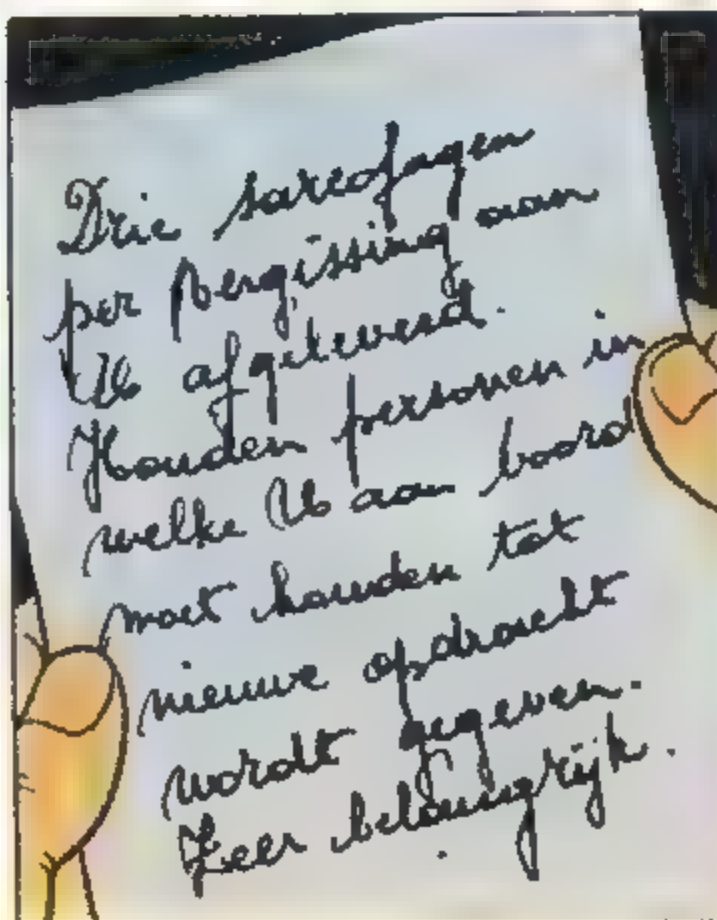 Drie sarcofagen
per vergissing aan
U afgeleverd.
Houden personen in
welke U aan boord
moet houden tot
nieuwe opdracht
wordt gegeven.
Zeer belangrijk.